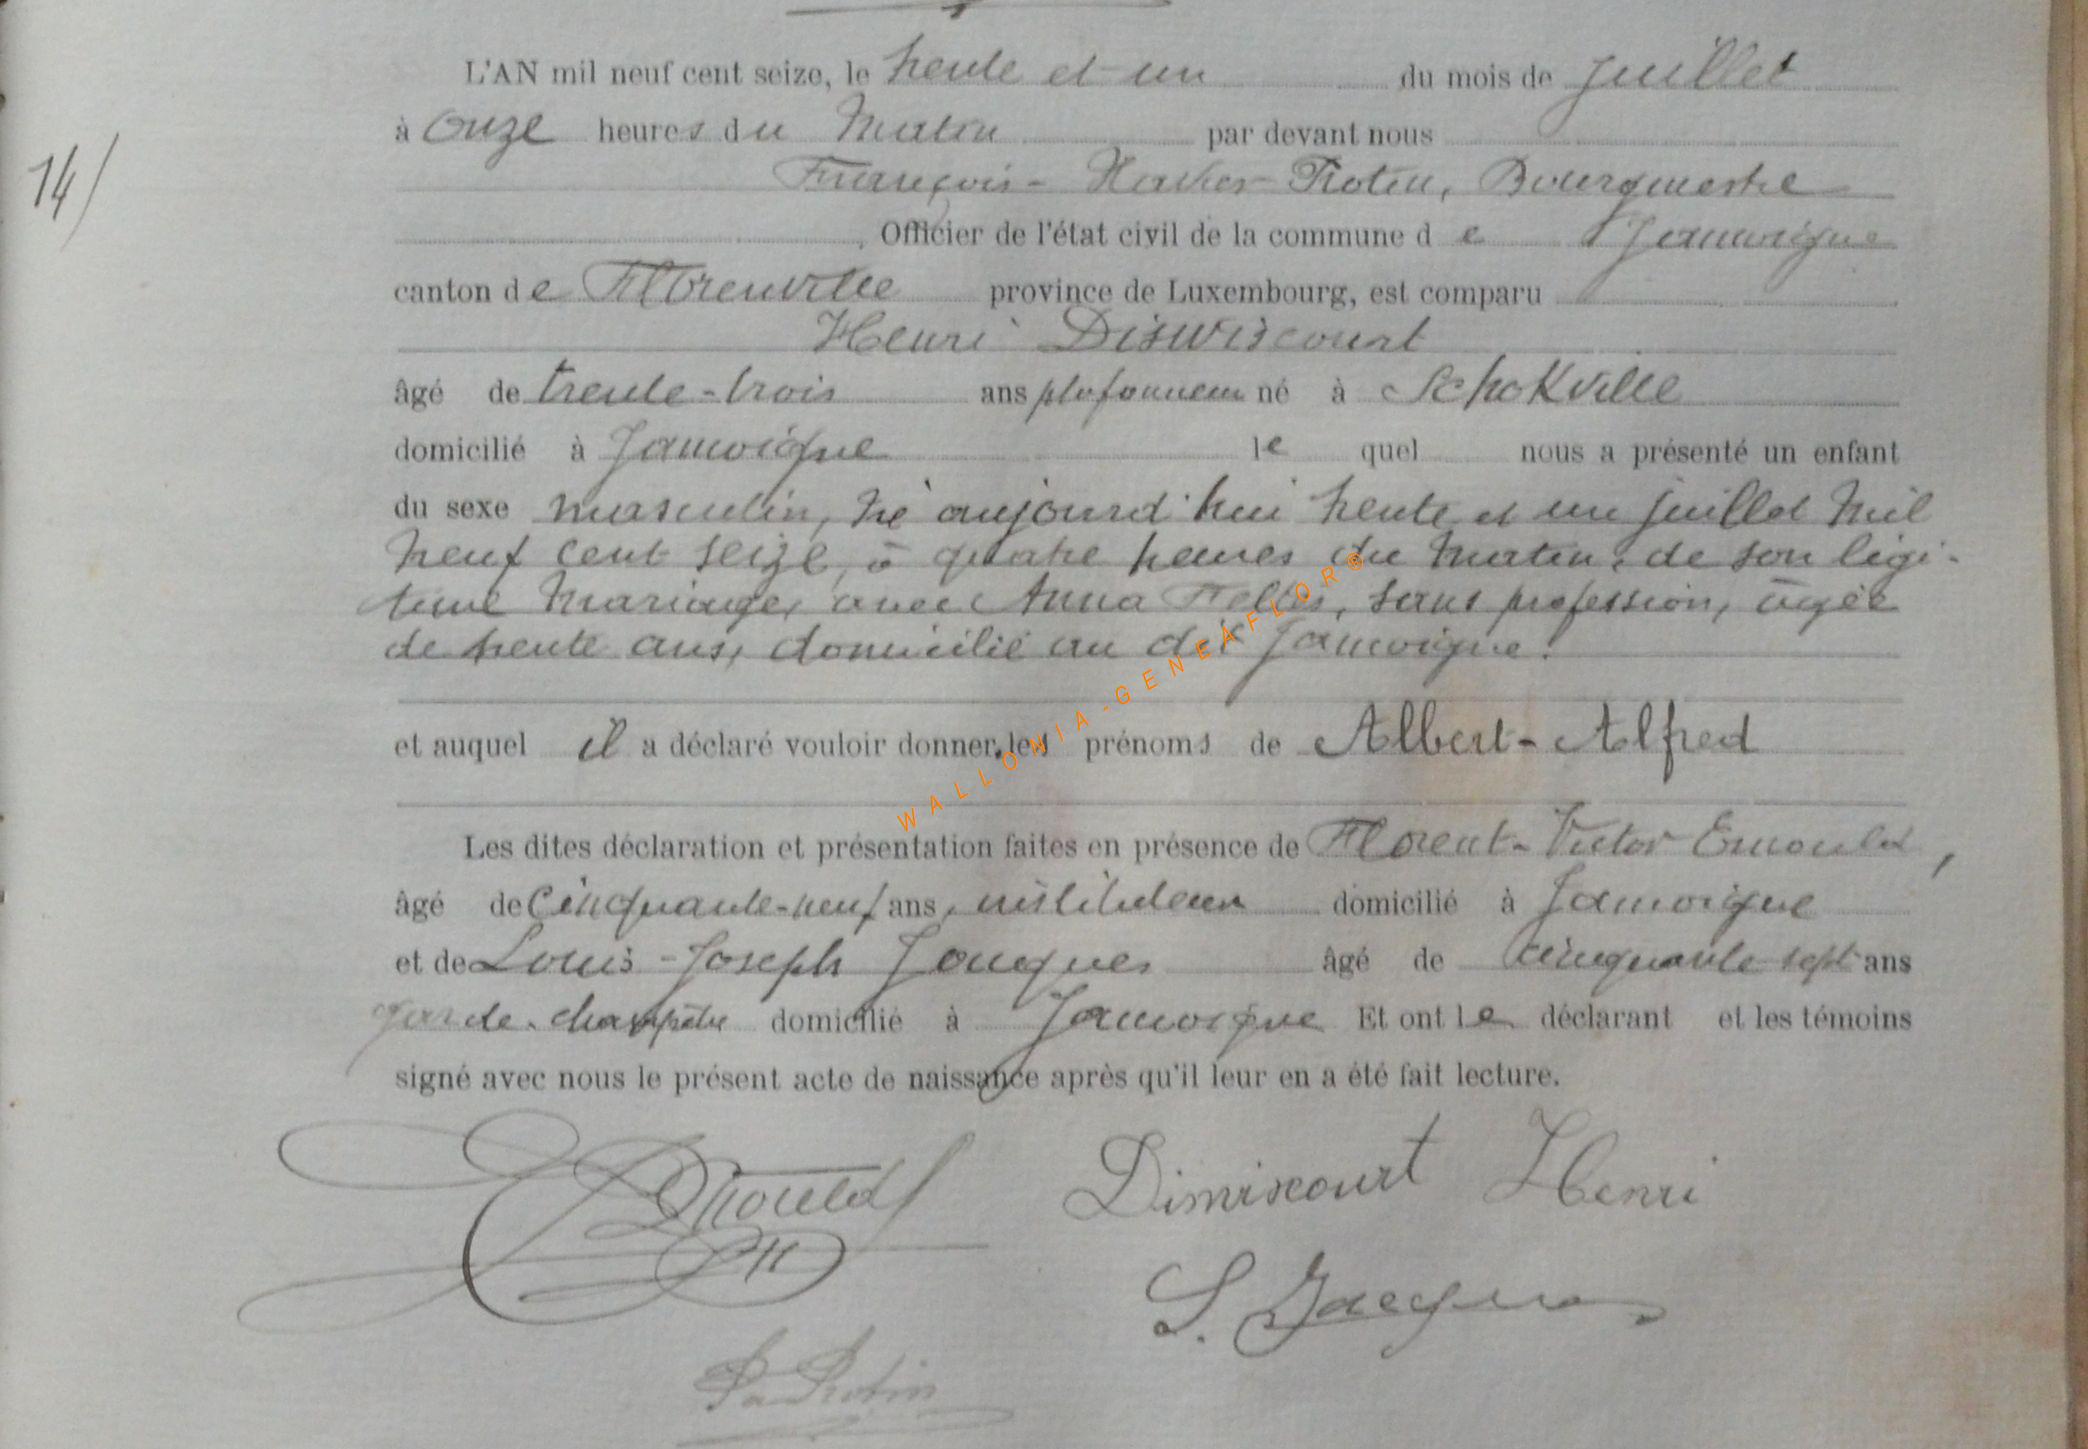 L'AN mil neuf cent seize, le trente et un du mois de juillet
14/
à onze heures du matin par devant nous
François-Xavier Protin, Bourgmestre
, Officier de l'état civil de la commune de Jamoigne
canton de Florenville province de Luxembourg, est comparu
Henri Diswiscourt
âgé de trente-trois ans plafonneur né à Schokville
domicilié à Jamoigne lequel nous a présenté un enfant
du sexe masculin, né aujourd'hui trente et un juillet mil
neuf cent seize, à quatre heures du matin, de son légi-
time mariage, avec Anna, sans profession, âgée
de trente ans, domicilié au dit Jamoigne.
et auquel il a déclaré vouloir donner les prénoms de Albert-Alfred
Les dites déclaration et présentation faites en présence de Florent-Victor
âgé de cinquante-neuf ans, instituteur domicilié à Jamoigne
et de Louis-Joseph Jacques âgé de cinquante sept ans
garde-champêtre domicilié à Jamoigne Et ont le déclarant et les témoins
signé avec nous le présent acte de naissance après qu'il leur en a été fait lecture.
Henri
L. Jacques
Protin
WALLONIA-GENEAFLOR®